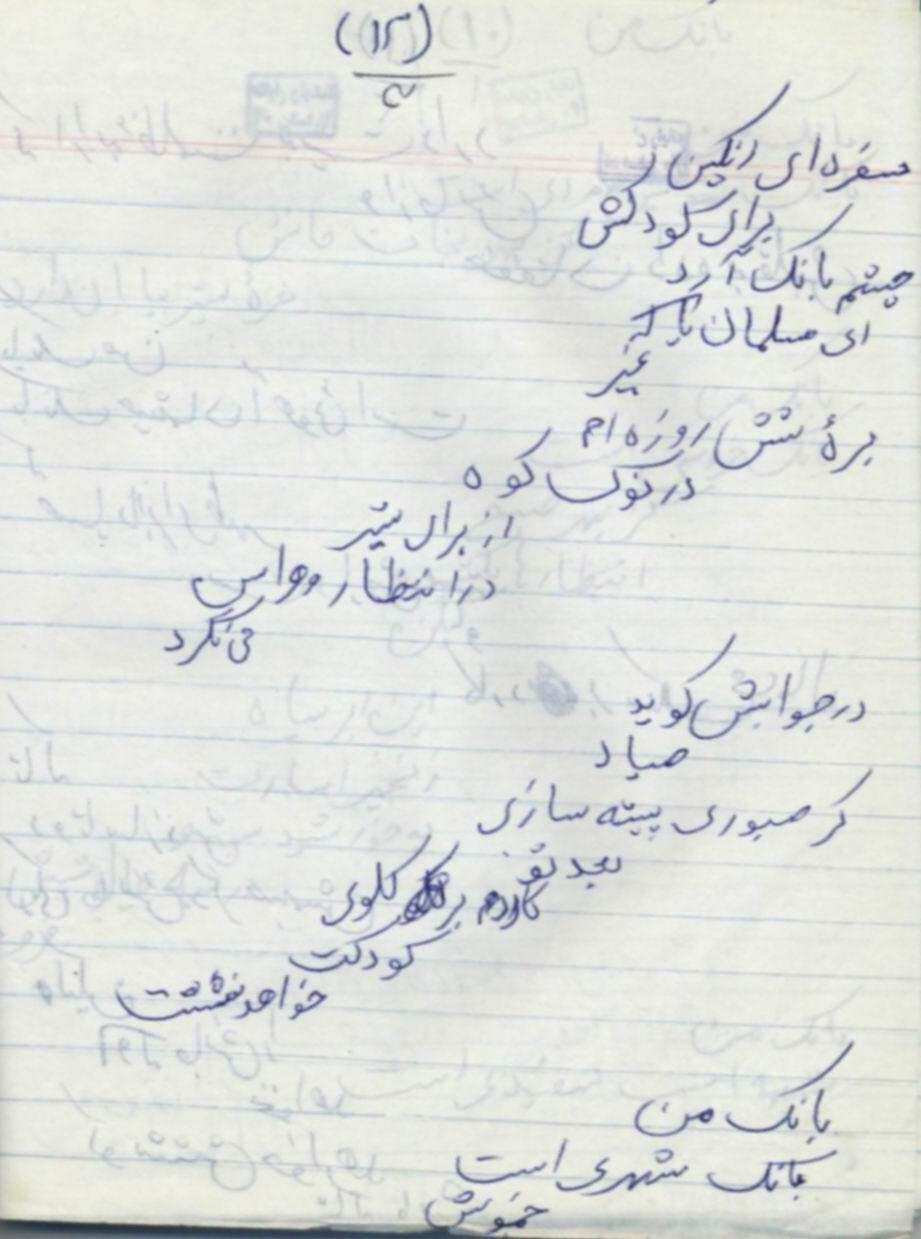 (۱۳)
سفره‌ای انگبین
برای کودکش
چشم بانک آرد
ای مسلمان
بره شش روزه ام
در نوک کوه
از برای شیر
در انتظار و واپس
می‌نگرد
در جوابش گوید
صیاد
گر صبوری پیشه سازی
بعد تو
کاردم بر گلوی
کودکت
خواهد نشست
بانک من
بانک شهری است
خموش